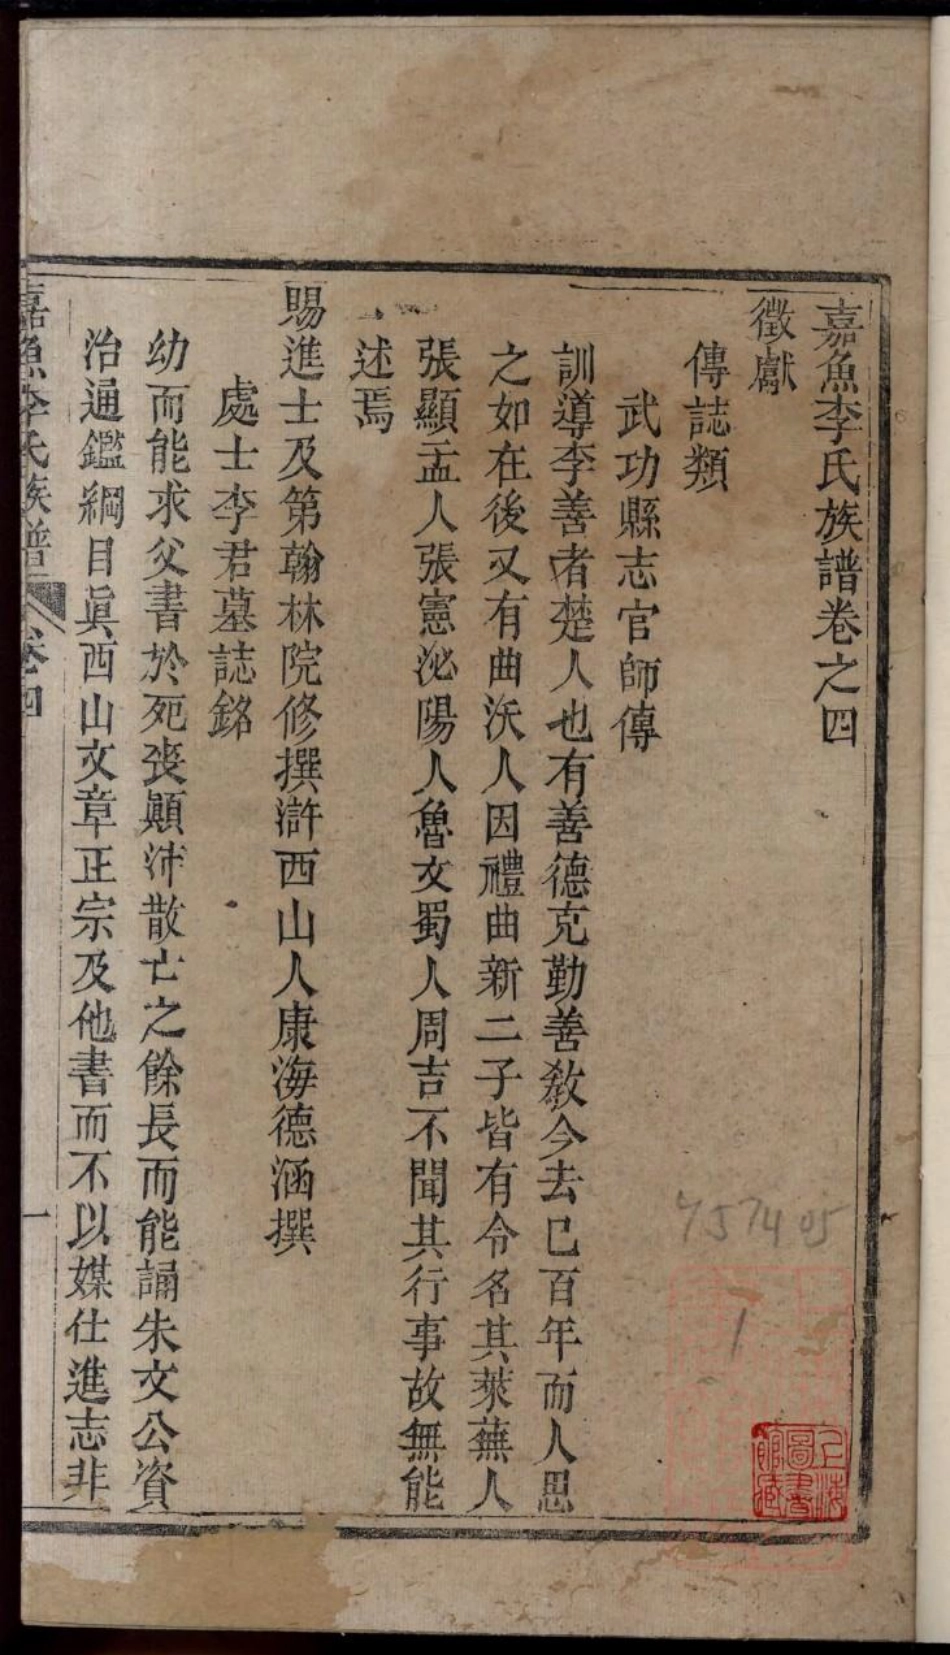 嘉魚李氏族譜卷之四
徵獻
傳誌類
武功縣志官師傳
訓導李善者楚人也有善德克勤善敎今去巳百年而人思
之如在後又有曲沃人因禮曲新二子皆有令名其萊蕪人
張顯盂人張憲泌陽人魯文蜀人周吉不聞其行事故無能
述焉
賜進士及第翰林院修撰滸西山人康海德涵撰
處士李君墓誌銘
幼而能求父書於死喪顚沛散亡之餘長而能誦朱文公資
治通鑑綱目眞西山文章正宗及他書而不以媒仕進志非
嘉魚李氏族譜 卷四 一
457405
1
上海圖書館藏